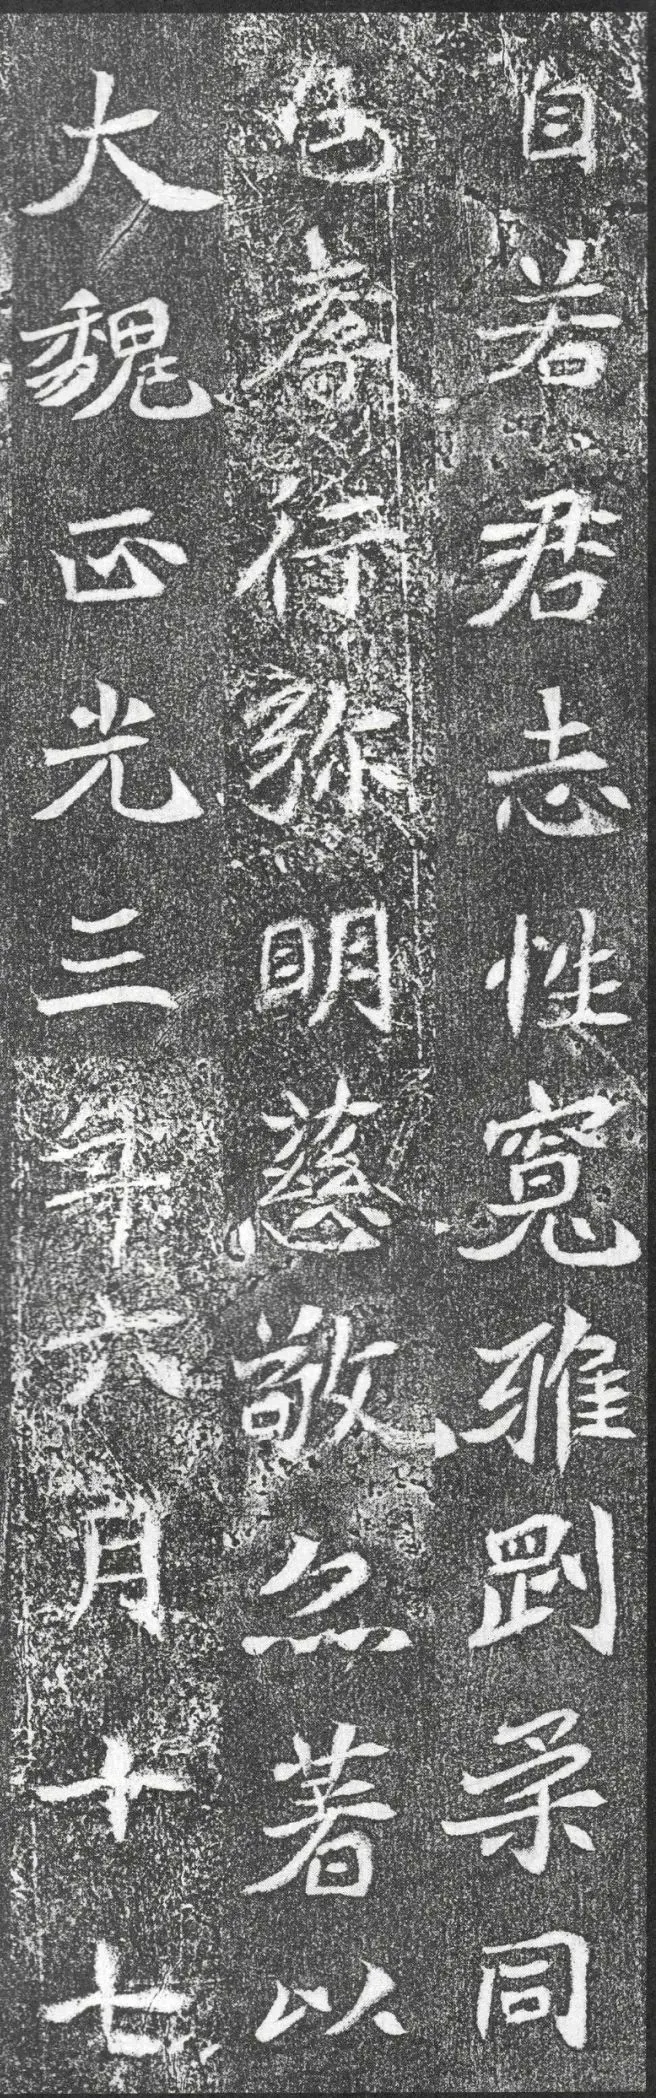 自若君志性寬雅剛柔同
色孝行弥明慈敬著以
大魏正光三年六月十七